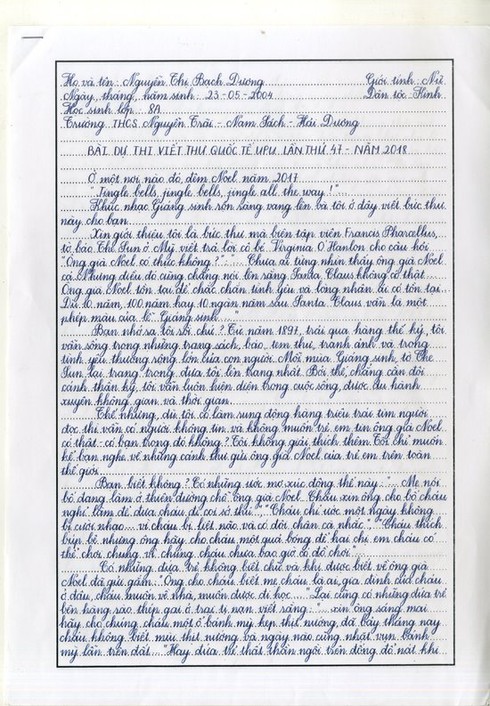 Họ và tên: Nguyễn Thị Bạch Dương Giới tính: Nữ
Ngày, tháng, năm sinh: 23-05-2004 Dân tộc: Kinh
Học sinh lớp: 8A
Trường THCS Nguyễn Trãi - Nam Sách - Hải Dương
BÀI DỰ THI VIẾT THƯ QUỐC TẾ UPU LẦN THỨ 47 - NĂM 2018
Ở một nơi nào đó, đêm Noel năm 2017
"Jingle bells, jingle bells, jingle all the way!"
Khúc nhạc Giáng sinh rộn ràng vang lên và tôi ở đây viết bức thư
này cho bạn.
Xin giới thiệu tôi là bức thư mà biên tập viên Francis Pharcellus,
tờ báo The Sun ở Mỹ viết trả lời cô bé Virginia O'Hanlon cho câu hỏi
"Ông già Noel có thực không?": "... Chưa ai từng nhìn thấy ông già Noel
cả. Nhưng điều đó cũng chẳng nói lên rằng Santa Claus không có thật...
Ông già Noel tồn tại để chắc chắn tình yêu và lòng nhân ái có tồn tại...
Dù 10 năm, 100 năm hay 10 ngàn năm sau Santa Claus vẫn là một
phép màu của lễ Giáng sinh..."
Bạn nhớ ra tôi rồi chứ? Từ năm 1897, trải qua hàng thế kỷ, tôi
vẫn sống trong những trang sách, báo, tem thư, tranh ảnh và trong
tình yêu thương rộng lớn của con người. Mỗi mùa Giáng sinh, tờ The
Sun lại trang trọng đưa tôi lên trang nhất. Bởi thế, chẳng cần đôi
cánh thần kỳ, tôi vẫn luôn hiện diện trong cuộc sống, được du hành
xuyên không gian và thời gian.
Thế nhưng, dù tôi có làm rung động hàng triệu trái tim người
đọc thì vẫn có người không tin và không muốn trẻ em tin ông già Noel
có thật - có bạn trong đó không? Tôi không giải thích thêm. Tôi chỉ muốn
kể bạn nghe về những cánh thư gửi ông già Noel của trẻ em trên toàn
thế giới.
Bạn biết không? Có những ước mơ xúc động thế này: "... Mẹ nói
bố đang làm ở thiên đường chế ông già Noel. Cháu xin ông cho bố cháu
nghỉ làm để đưa cháu đi coi sở thú." "Cháu chỉ ước một ngày không
bị cười nhạo... vì cháu bị liệt não và có đôi chân cà nhắc." "Cháu thích
búp bê nhưng ông hãy cho cháu một quả bóng để hai chị em cháu có
thể chơi chung vì chúng cháu chưa bao giờ có đồ chơi"...
Có những đứa trẻ không biết chữ và khi được biết về ông già
Noel đã gửi gắm: "Ông cho cháu biết mẹ cháu là ai, gia đình của cháu
ở đâu, cháu muốn về nhà, muốn được đi học..." Lại cũng có những đứa trẻ
bên hàng rào thép gai ở trại tị nạn viết rằng: "... xin ông sáng mai
hãy cho chúng cháu một ổ bánh mỳ kẹp thịt nướng, đã bảy tháng nay
cháu không biết mùi thịt nướng và ngày nào cũng nhặt vụn bánh
mỳ lẫn trên đất..." Hay đứa trẻ thất thần ngồi trên đống đổ nát khi